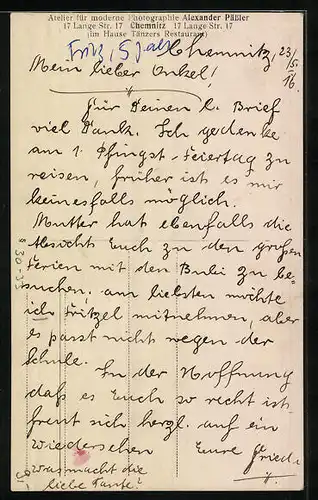 Atelier für moderne Photographie Alexander Päßler
17 Lange Str. 17 Chemnitz 17 Lange Str. 17
(im Hause Tänzers Restaurant)
Fritz, 5 Jahr
Chemnitz, 23/5. 16.
Mein lieber Onkel!
Für Deinen l. Brief
viel Dank. Ich gedenke
am 1. Pfingst-Feiertag zu
reisen, früher ist es mir
keinesfalls möglich.
Mutter hat ebenfalls die
Absicht Euch zu den großen
Ferien mit den Bubi zu be-
suchen, am liebsten möchte
ich Fritzel mitnehmen, aber
es passt nicht wegen der
Schule.
In der Hoffnung
daß es Euch so recht ist
freut sich herzl. auf ein
Wiedersehen Eure Friedl
was macht die
liebe Tante?